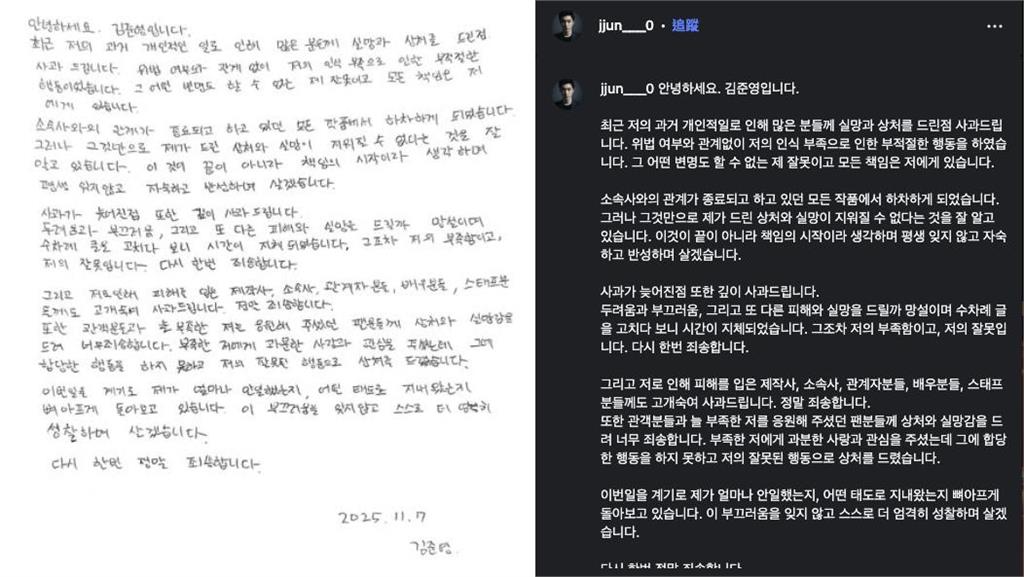 안녕하세요. 김준영입니다.
최근 저의 과거 개인적인 일로 인해 많은 분들께 실망과 상처를 드린점
사과 드립니다. 위법 여부와 관계 없이 저의 인식 부족으로 인한 부적절한
행동이었습니다. 그 어떤 변명도 할 수 없는 제 잘못이고 모든 책임은 저
에게 있습니다.
소속사와의 관계가 종료되고 하고 있던 모든 작품에서 하차하게 되었습니다.
그러나 그것만으로 제가 드린 상처와 실망이 지워질 수 없다는 것을 잘
알고 있습니다. 이 것이 끝이 아니라 책임의 시작이라 생각하며
평생 잊지않고 자숙하고 반성하며 살겠습니다.
사과가 늦어진점 또한 깊이 사과드립니다.
두려움과 부끄러움, 그리고 또 다른 피해와 실망을 드릴까 망설이며
수차례 글을 고치다 보니 시간이 지체 되었습니다. 그조차 저의 부족함이고,
저의 잘못입니다. 다시 한번 죄송합니다.
그리고 저로인해 피해를 입은 제작사, 소속사, 관계자분들, 배우분들, 스태프분
들께도 고개숙여 사과드립니다. 정말 죄송합니다.
또한 관객분들과 늘 부족한 저를 응원해 주셨던 팬분들께 상처와 실망감을
드려 너무죄송합니다. 부족한 저에게 과분한 사랑과 관심을 주셨는데 그에
합당한 행동을 하지 못하고 저의 잘못된 행동으로 상처를 드렸습니다.
이번일을 계기로 제가 얼마나 안일했는지, 어떤 태도로 지내왔는지
뼈아프게 돌아보고 있습니다. 이 부끄러움을 잊지않고 스스로 더 엄격히
성찰하며 살겠습니다.
다시 한번 정말 죄송합니다.
2025.11.7
김준영.
jjun___0 • 追蹤
jjun___0 안녕하세요. 김준영입니다.
최근 저의 과거 개인적일로 인해 많은 분들께 실망과 상처를 드린점 사과드립
니다. 위법 여부와 관계없이 저의 인식 부족으로 인한 부적절한 행동을 하였습
니다. 그 어떤 변명도 할 수 없는 제 잘못이고 모든 책임은 저에게 있습니다.
소속사와의 관계가 종료되고 하고 있던 모든 작품에서 하차하게 되었습니다.
그러나 그것만으로 제가 드린 상처와 실망이 지워질 수 없다는 것을 잘 알고
있습니다. 이것이 끝이 아니라 책임의 시작이라 생각하며 평생 잊지 않고 자숙
하고 반성하며 살겠습니다.
사과가 늦어진점 또한 깊이 사과드립니다.
두려움과 부끄러움, 그리고 또 다른 피해와 실망을 드릴까 망설이며 수차례 글
을 고치다 보니 시간이 지체되었습니다. 그조차 저의 부족함이고, 저의 잘못입니
다. 다시 한번 죄송합니다.
그리고 저로 인해 피해를 입은 제작사, 소속사, 관계자분들, 배우분들, 스태프
분들께도 고개숙여 사과드립니다. 정말 죄송합니다.
또한 관객분들과 늘 부족한 저를 응원해 주셨던 팬분들께 상처와 실망감을 드
려 너무 죄송합니다. 부족한 저에게 과분한 사랑과 관심을 주셨는데 그에 합당
한 행동을 하지 못하고 저의 잘못된 행동으로 상처를 드렸습니다.
이번일을 계기로 제가 얼마나 안일했는지, 어떤 태도로 지내왔는지 뼈아프게
돌아보고 있습니다. 이 부끄러움을 잊지 않고 스스로 더 엄격히 성찰하며 살겠
습니다.
다시 한번 정말 죄송합니다